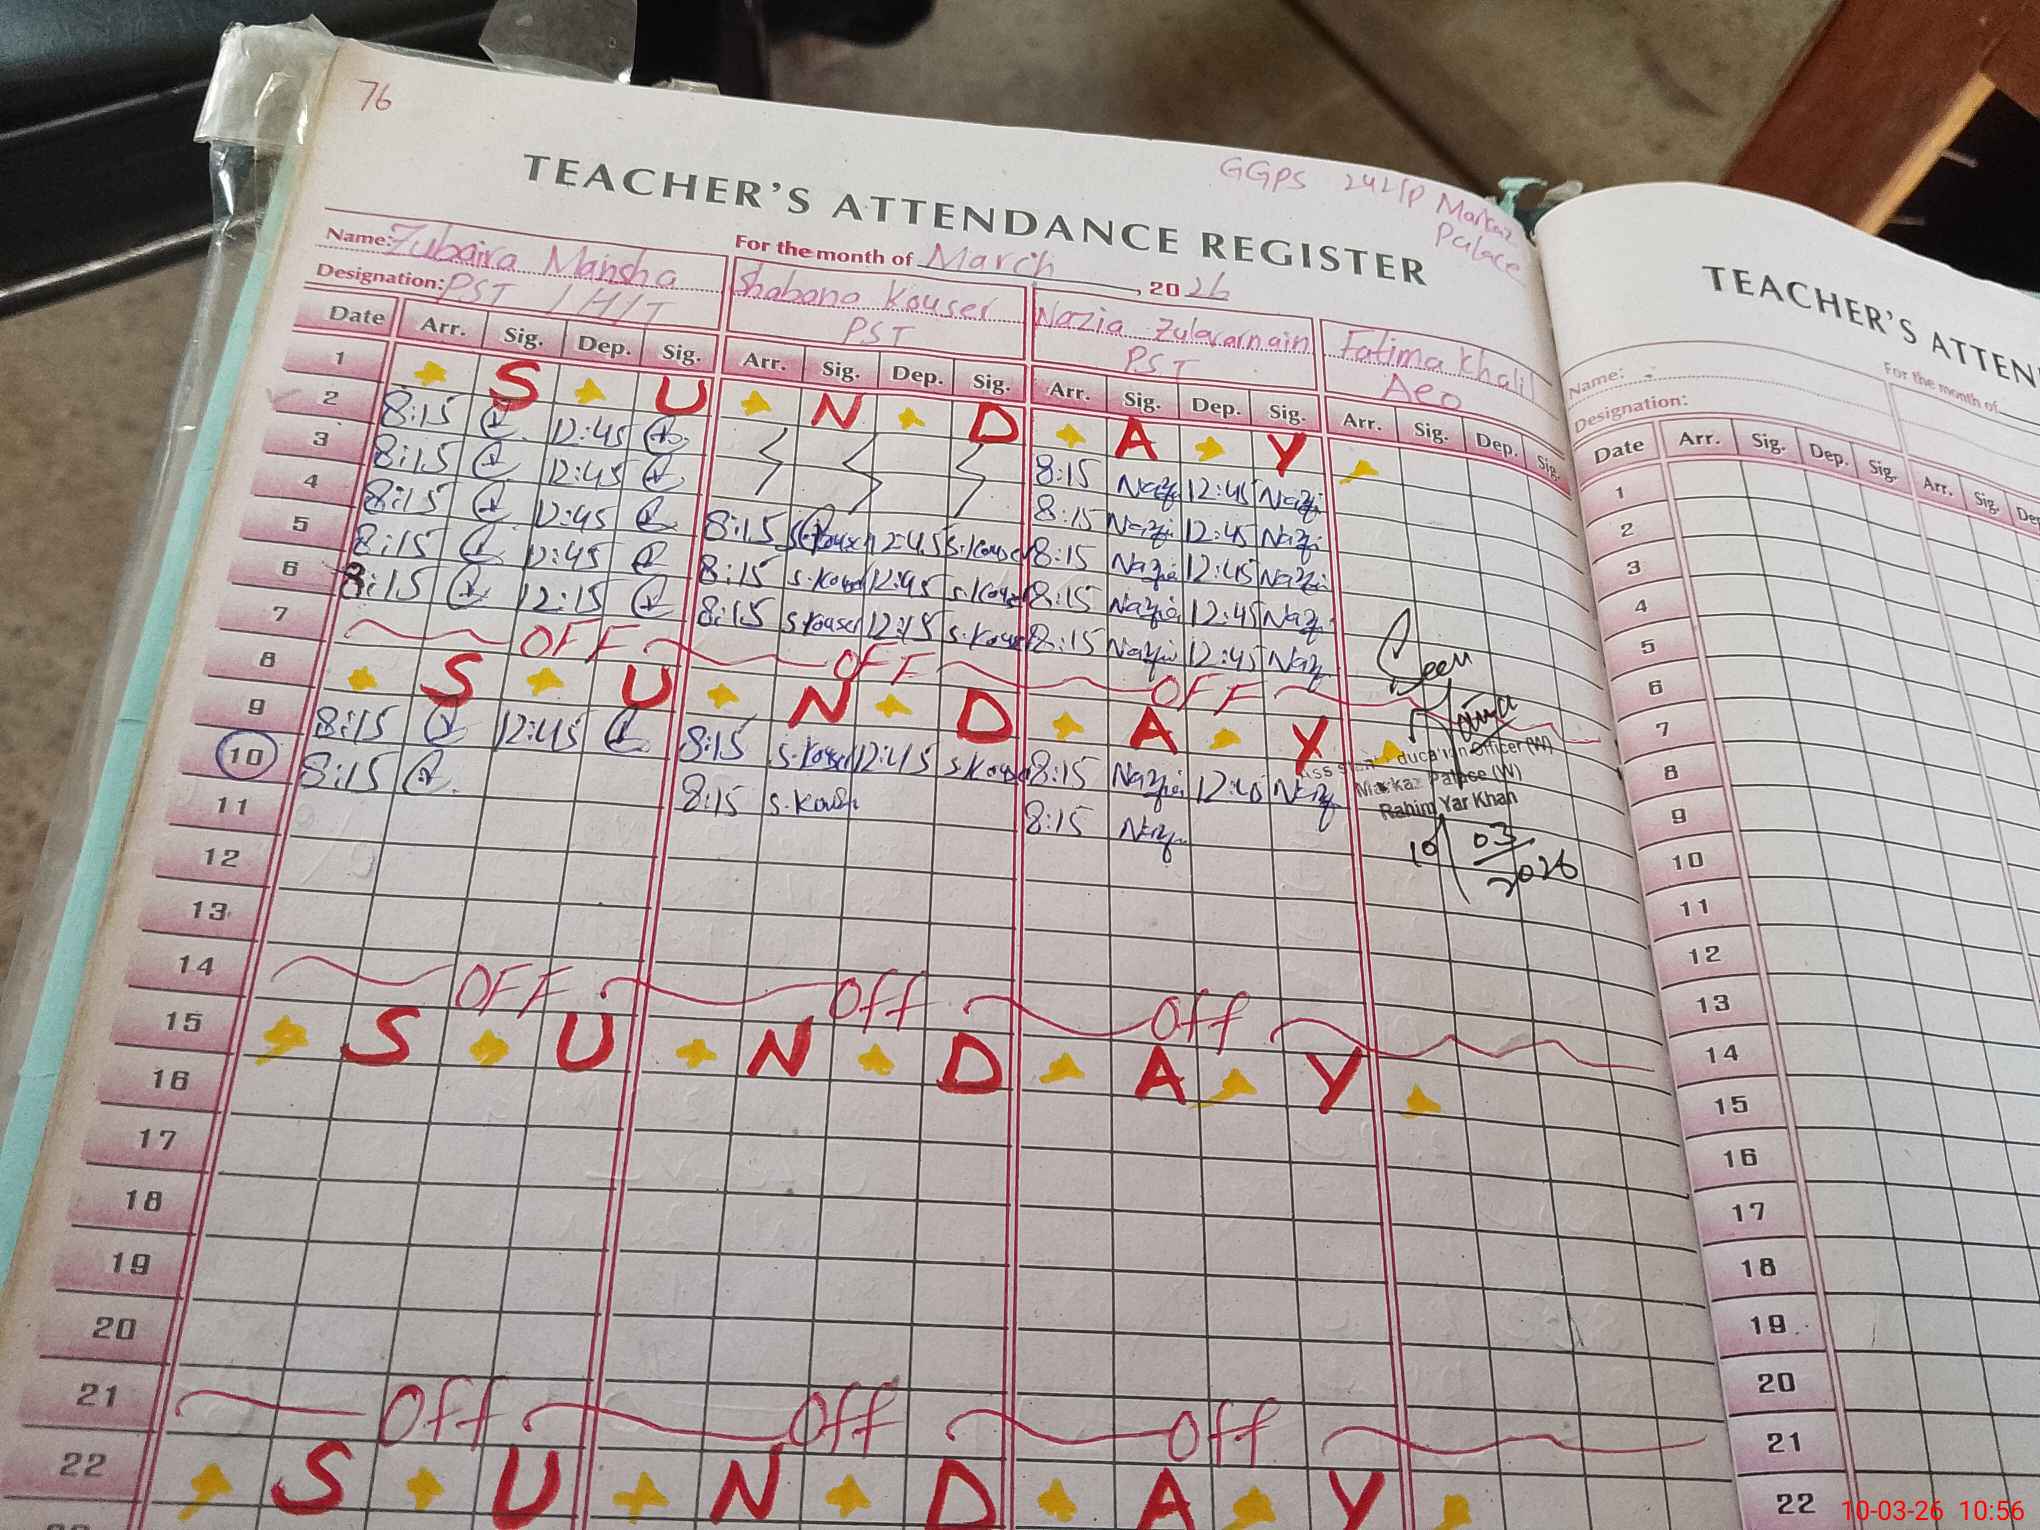 76
TEACHER'S ATTENDANCE REGISTER
GGPS 242/P Markaz
Palace
For the month of March, 2026
Name: Zubaira Mansha
Designation: PST / H/T
Shabana Kouser
PST
Nazia Zulqarnain
PST
Fatima Khalil
Aeo
Date Arr. Sig. Dep. Sig. Arr. Sig. Dep. Sig. Arr. Sig. Dep. Sig. Arr. Sig. Dep. Sig.
1 S U N D A Y
2 8:15 12:45 8:15 Nazi 12:45 Nazi
3 8:15 12:45 8:15 Nazi 12:45 Nazi
4 8:15 12:45 8:15 S.Kouser 12:45 S.Kouser 8:15 Nazi 12:45 Nazi
5 8:15 12:45 8:15 S.Kouser 12:45 S.Kouser 8:15 Nazi 12:45 Nazi
6 8:15 12:15 8:15 S.Kouser 12:15 S.Kouser 8:15 Nazi 12:45 Naz
7 OFF OFF OFF
8 S U N D A Y
9 8:15 12:45 8:15 S.Kouser 12:45 S.Kouser 8:15 Nazi 12:45 Naz
10 8:15 8:15 S.Kouser 8:15 Naz
Seen
Assistant Education Officer (W)
Markaz Palace (W)
Rahim Yar Khan
10/03/2026
11
12
13
14 OFF Off Off
15 S U N D A Y
16
17
18
19
20
21 Off Off Off
22 S U N D A Y
TEACHER'S ATTEN
Name:
For the month of
Designation:
Date Arr. Sig. Dep. Sig. Arr. Sig. De
1
2
3
4
5
6
7
8
9
10
11
12
13
14
15
16
17
18
19
20
21
22
10-03-26 10:56